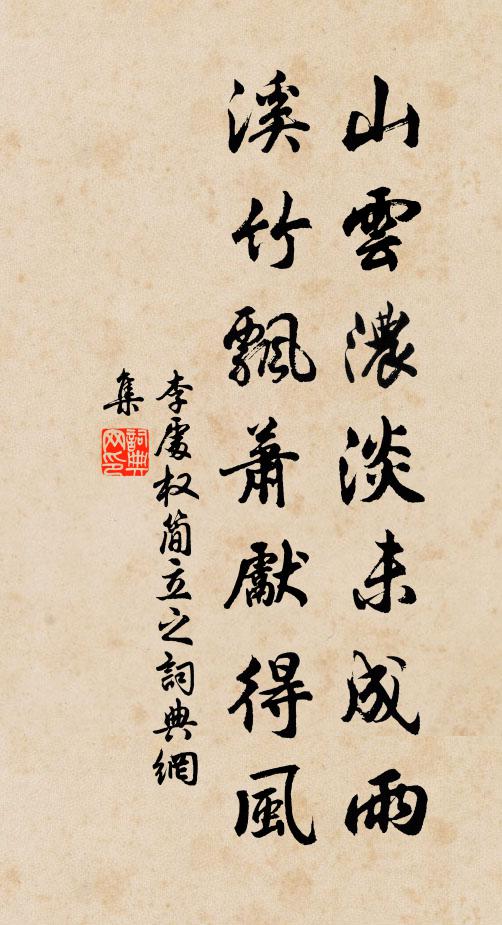 山雲濃淡未成雨
溪竹飄蕭獻得風
李處权简立之詞典網
集
詞典网印